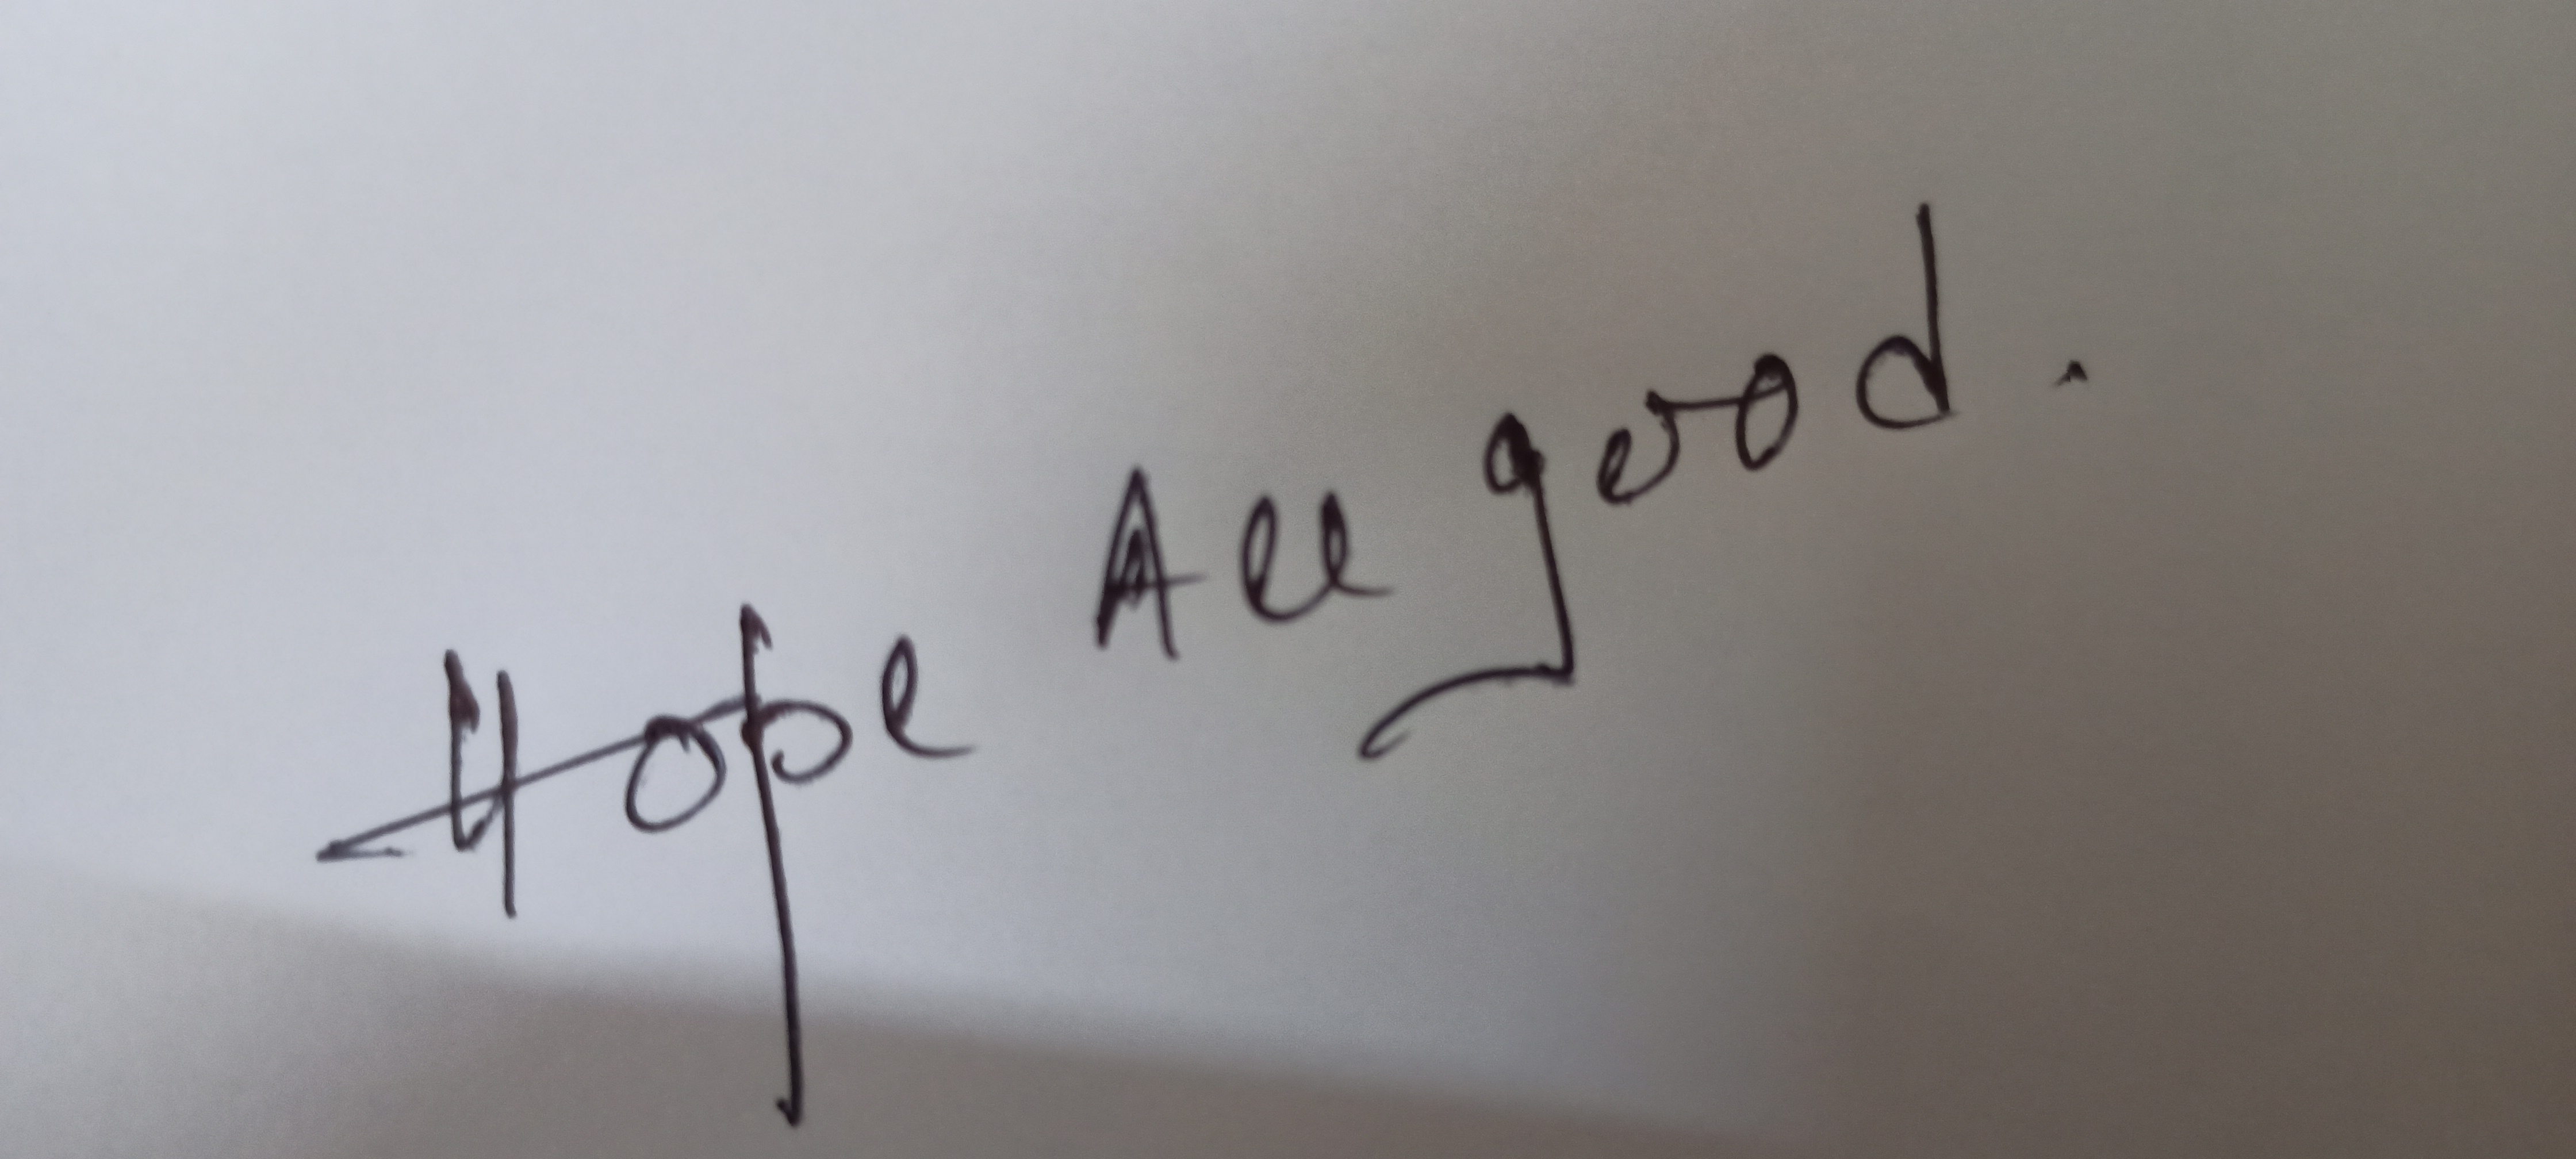 Hope All good.